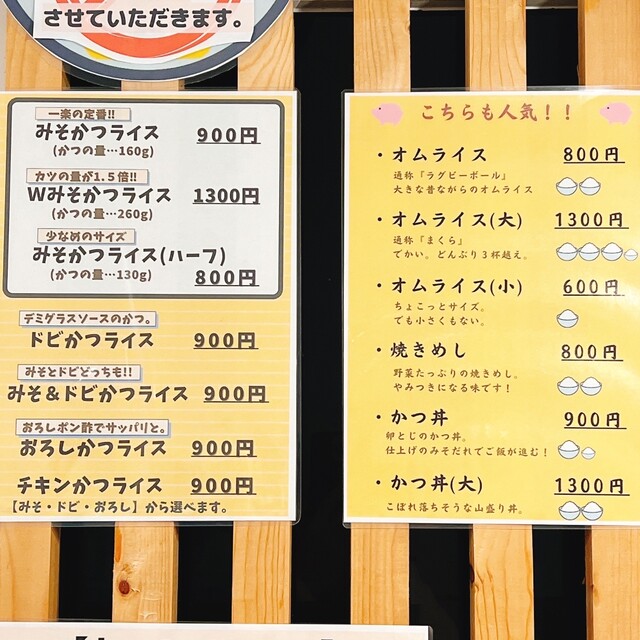 させていただきます。
一楽の定番!!
みそかつライス 900円
(かつの量…160g)
カツの量が1.5倍!!
Wみそかつライス 1300円
(かつの量…260g)
少なめのサイズ
みそかつライス(ハーフ)
(かつの量…130g) 800円
デミグラスソースのかつ。
ドビかつライス 900円
みそとドビどっちも!!
みそ&ドビかつライス 900円
おろしポン酢でサッパリと。
おろしかつライス 900円
チキンかつライス 900円
【みそ・ドビ・おろし】から選べます。
こちらも人気!!
・オムライス 800円
通称『ラグビーボール』
大きな昔ながらのオムライス
・オムライス(大) 1300円
通称『まくら』
でかい。どんぶり3杯越え。
・オムライス(小) 600円
ちょこっとサイズ。
でも小さくもない。
・焼きめし 800円
野菜たっぷりの焼きめし。
やみつきになる味です!
・かつ丼 900円
卵とじのかつ丼。
仕上げのみそだれでご飯が進む!
・かつ丼(大) 1300円
こぼれ落ちそうな山盛り丼。